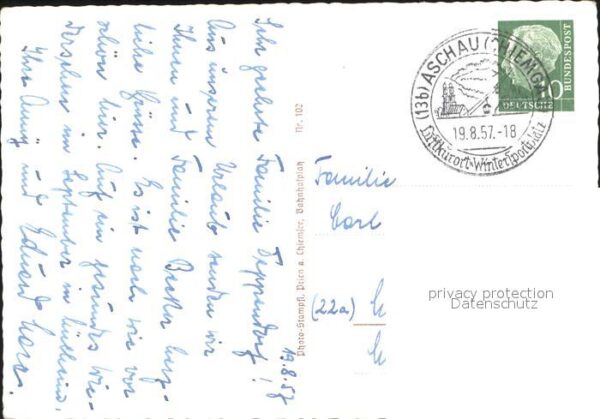 19.8.57
Sehr geehrte Familie Teppendorf!
Aus unserem Urlaub senden wir
Ihnen und Familie Becker herz-
liche Grüsse. Es ist nach wie vor
schön hier. Auf ein gesundes Wie-
dersehen im September in
Ihre Änny und Eduard
Photo-Stampfl, Prien a. Chiemsee, Bahnhofplatz Nr. 102
(13b) ASCHAU (CHIEMGAU)
19.8.57.-18
Luftkurort-Wintersportplatz
10
DEUTSCHE
BUNDESPOST
Familie
Carl
(22a)
privacy protection
Datenschutz